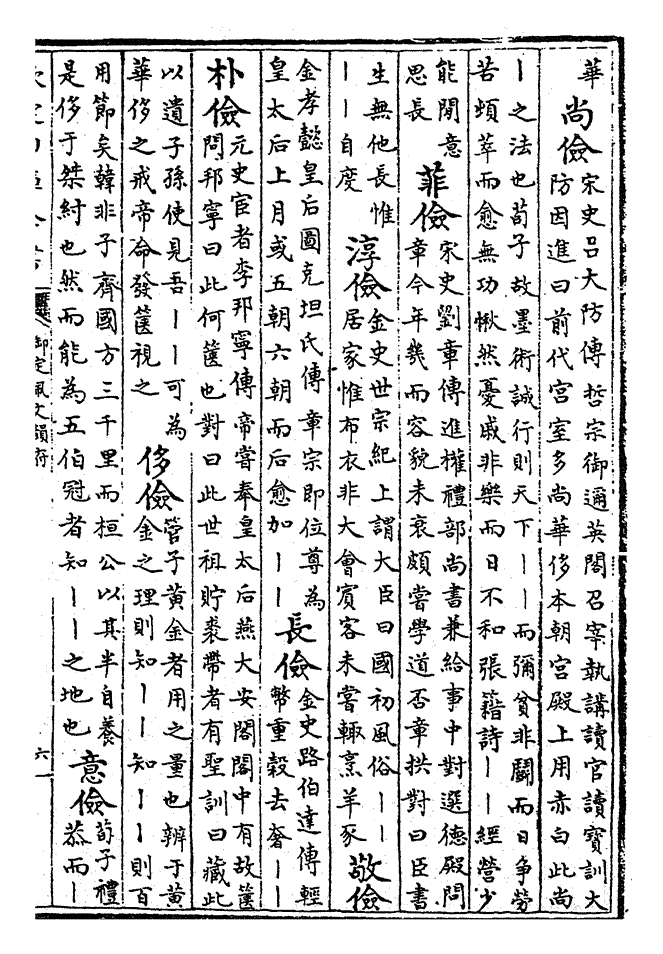 華
尚儉
宋史吕大防傳哲宗御邇英閣召宰執講讀官讀寶訓大
防因進曰前代宮室多尚華侈本朝宮殿上用赤白此尚
丨之法也荀子故墨術誠行則天下丨丨而彌貧非鬭而日争勞
苦頓萃而愈無功愀然憂戚非樂而日不和張籍詩丨丨經營少
能閒意
思長
菲儉
宋史劉章傳進權禮部尚書兼給事中對選德殿問
章今年幾而容貌未衰頗嘗學道否章拱對曰臣書
生無他長惟
丨丨自度
淳儉
金史世宗紀上謂大臣曰國初風俗丨丨
居家惟布衣非大會賓客未嘗輙烹羊豕
敬儉
金孝懿皇后圖克坦氏傳章宗即位尊為
皇太后上月或五朝六朝而后愈加丨丨
長儉
金史路伯達傳輕
幣重榖去奢丨丨
朴儉
元史宦者李邦寧傳帝嘗奉皇太后燕大安閣閣中有故篋
問邦寧曰此何篋也對曰此世祖貯裘帶者有聖訓曰藏此
以遺子孫使見吾丨丨可為
華侈之戒帝命發篋視之
侈儉
管子黄金者用之量也辨于黄
金之理則知丨丨知丨丨則百
用節矣韓非子齊國方三千里而桓公以其半自養
是侈于桀紂也然而能為五伯冠者知丨丨之地也
意儉
荀子禮
恭而丨
御定佩文韻府